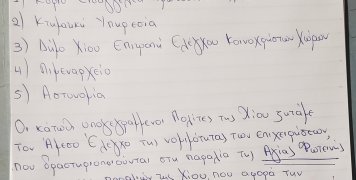 2) Κτηματική Υπηρεσία
3) Δήμο Χίου Επιτροπή Ελέγχου Κοινοχρήστων Χώρων
4) Λιμεναρχείο
5) Αστυνομία
Οι κάτωθι υπογεγραμμένοι Πολίτες της Χίου ζητάμε
τον Άμεσο Έλεγχο της νομιμότητας των επιχειρήσεων,
που δραστηριοποιούνται στη παραλία της Αγίας Φωτεινής
της Χίου, που αφορά την